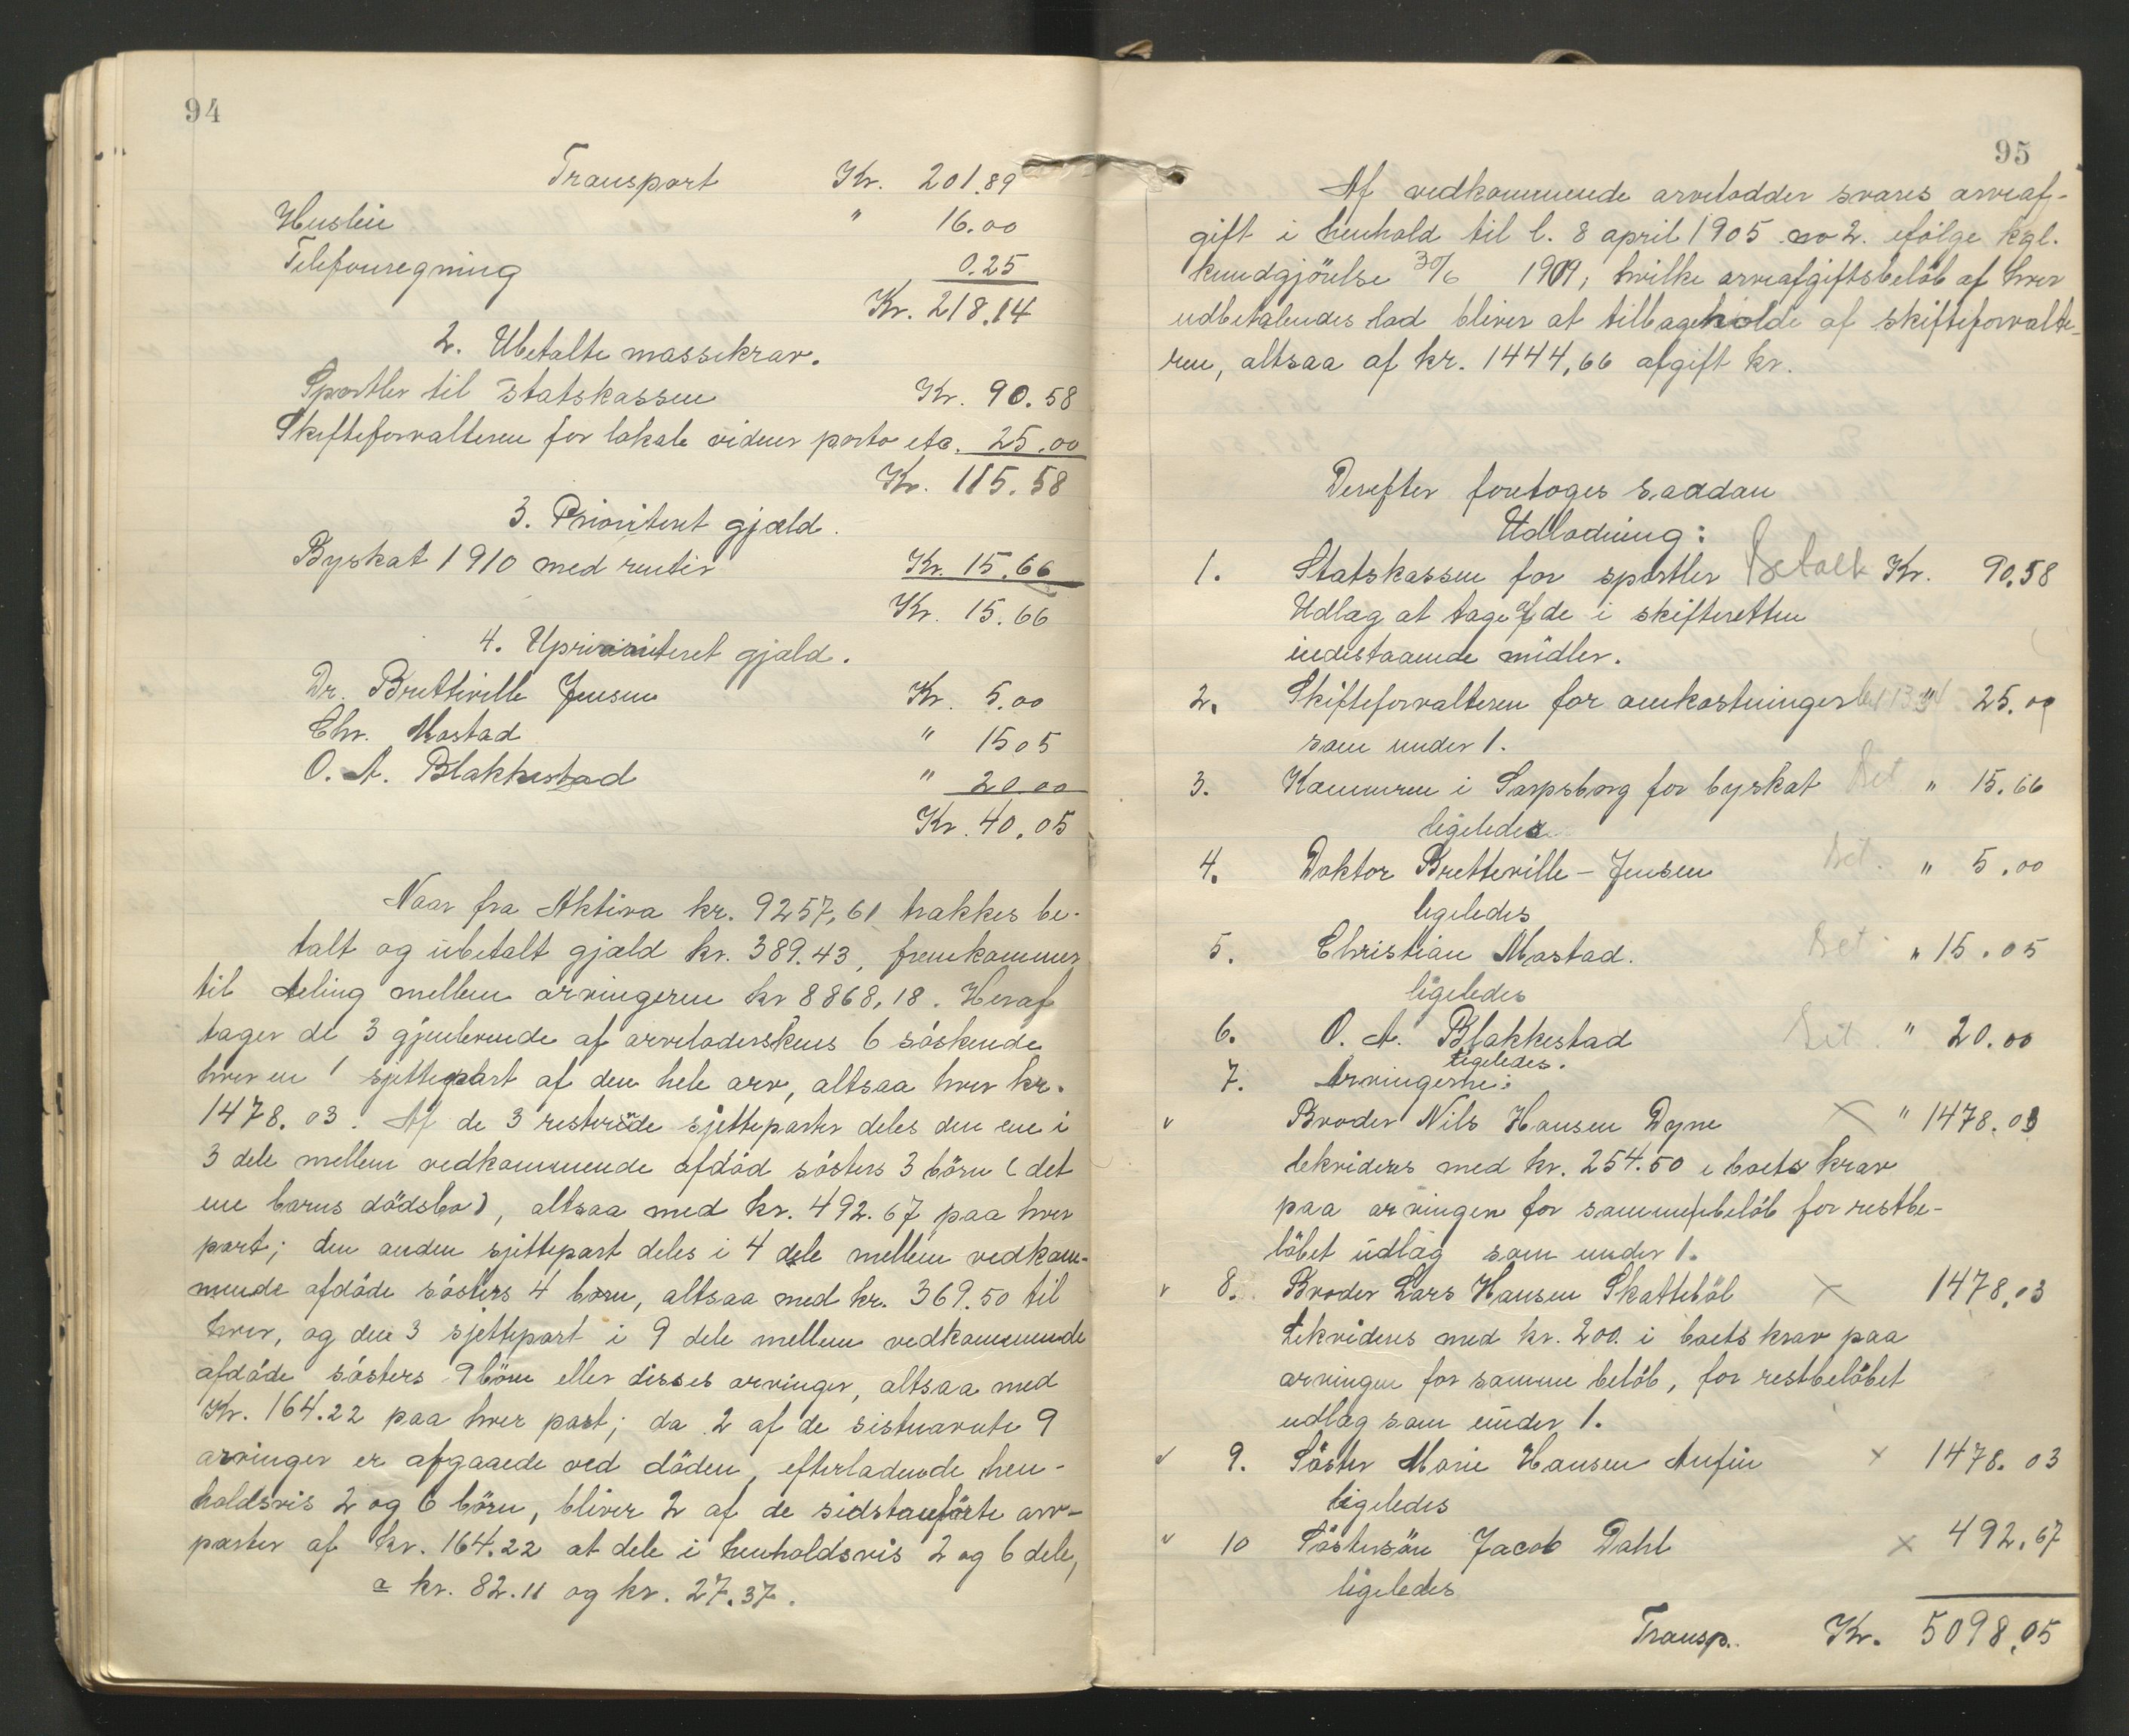 94
Transport Kr. 201.89
Husleie " 16.00
Telefonregning 0.25
Kr. 218.14
2. Ubetalte massekrav.
Sportler til Statskassen Kr. 90.58
Skifteforvalteren for lokale vidner porto etc. 25.00
Kr. 115.58
3. Prioriteret gjæld.
Byskat 1910 med renter Kr. 15.66
Kr. 15.66
4. Uprioriteret gjæld.
Dr. Bretteville Jensen Kr. 5.00
Chr. Mostad " 15 05
O. A. Blakkestad " 20.00
Kr. 40.05
Naar fra Aktiva kr. 9257,61 trækkes be-
talt og ubetalt gjæld kr. 389.43, fremkommer
til deling mellem arvingerne kr 8868,18. Heraf
tager de 3 gjenlevende af arveladerskens 6 söskende
hver en 1 sjettepart af den hele arv, altsaa hver kr.
1478.03. Af de 3 resterende sjetteparter deles den ene i
3 dele mellem vedkommende afdöd sösters 3 börn (det
ene barns dödsbo), altsaa med kr. 492.67 paa hver
part; den anden sjettepart deles i 4 dele mellem vedkom-
mende afdöde sösters 4 börn, altsaa med kr. 369.50 til
hver, og den 3 sjettepart i 9 dele mellem vedkommende
afdöde sösters 9 börn eller disses arvinger, altsaa med
Kr. 164.22 paa hver part; da 2 af de sistnævnte 9
arvinger er afgaaede ved döden, efterladende hen-
holdsvis 2 og 6 börn, bliver 2 af de sidstanförte arv-
parter af kr. 164.22 at dele i henholdsvis 2 og 6 dele,
a kr. 82.11 og kr. 27.37.
95
Af vedkommende arvelodder svares arveaf-
gift i henhold til l. 8 april 1905 no 2. efölge kgl.
kundgjörelse 30/6 1909; hvilke arveafgiftsbelöb af hver
udbetalendes lod bliver at tilbageholde af skifteforvalte-
ren, altsaa af kr. 1444,66 afgift kr.
Derefter foretoges saadan
Udlodning:
1. Statskassen for sportler Betalt Kr. 90.58
Udlæg at tage af de i skifteretten
indestaaende midler.
2. Skifteforvalteren for omkostninger " 25.00
som under 1.
3. Kæmneren i Sarpsborg for byskat Bet " 15.66
ligeledes
4. Doktor Bretteville-Jensen Bet. " 5.00
ligeledes
5. Christian Mostad. Bet " 15.05
ligeledes
6. O. A. Blakkestad Bet. " 20.00
ligeledes.
7. Arvingerne:
v Broder Nils Hansen Dyne x " 1478.03
lekvideres med kr. 254.50 i boets krav
paa arvingen for sammebelöb for restbe-
löbet udlæg som under 1.
v 8. Broder Lars Hansen Skatteböl x 1478,03
Lekvideres med kr. 200. i boets krav paa
arvingen for samme belöb, for restbelöbet
udlæg som under 1.
v 9. Söster Marie Hansen Anfin x 1478.03
ligeledes
v 10 Söstersön Jacob Dahl x 492,67
ligeledes
Transp. Kr. 5098,05